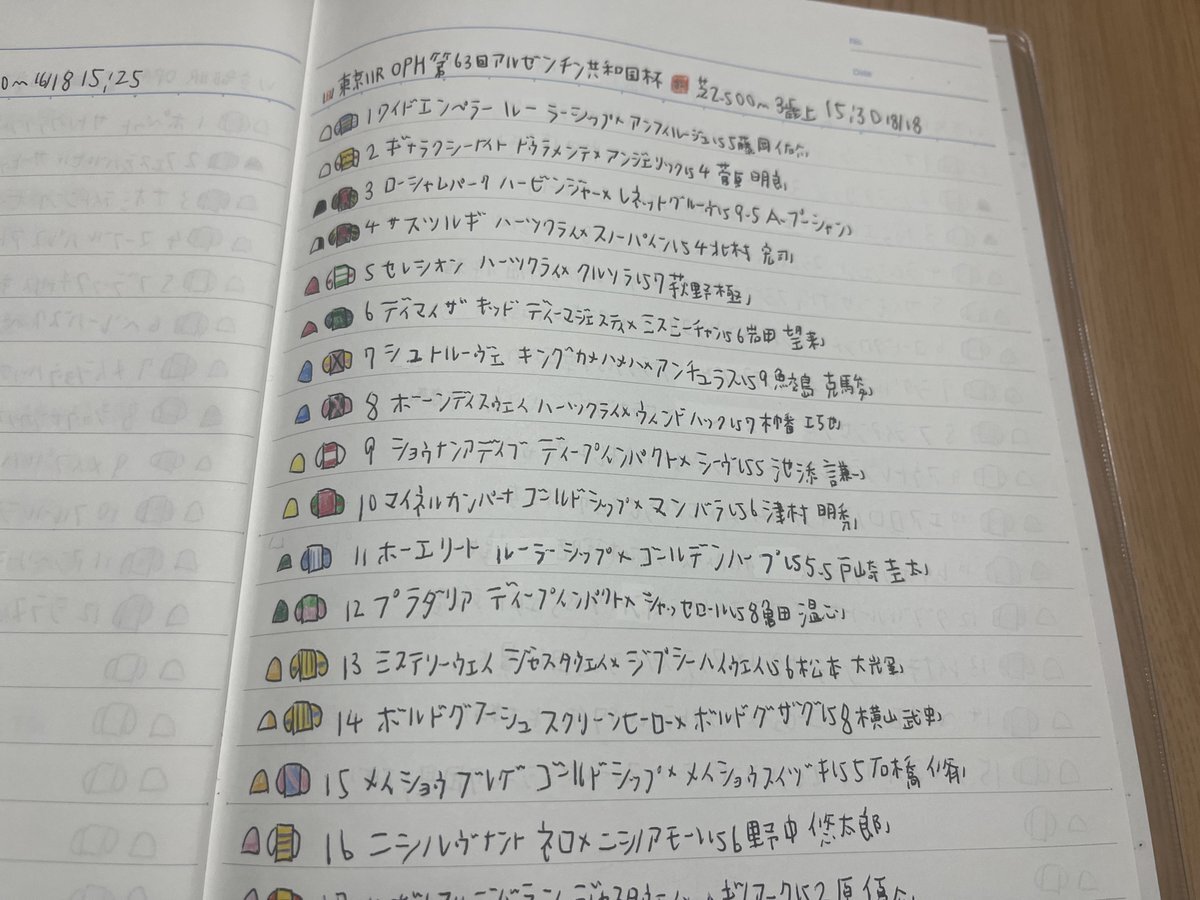 0〜16/18 15:25
東京11R OPH 第63回アルゼンチン共和国杯 芝2.500m 3歳上 15:30 18/18
1 ワイドエンペラー ルーラーシップ×アンフィルージュ 55 藤岡佑介
2 ギャラクシーナイト ドゥラメンテ×アンジェリック 54 菅原明良
3 ローシャムパーク ハービンジャー×レネットグルーヴ 59.5 A.プーシャン
4 サスツルギ ハーツクライ×スノーパイン 54 北村宏司
5 セレシオン ハーツクライ×クルソラ 57 荻野極
6 ディマイザキッド ディーマジェスティ×ミスミーチャン 56 岩田望来
7 シュトルーヴェ キングカメハメハ×アンチュラス 59 鮫島克駿
8 ボーンディスウェイ ハーツクライ×ウィンドハック 57 木幡巧也
9 ショウナンアデイブ ディープインパクト×シーヴ 55 池添謙一
10 マイネルカンパーナ ゴールドシップ×マンバラ 56 津村明秀
11 ホーエリート ルーラーシップ×ゴールデンハープ 55.5 戸崎圭太
12 プラダリア ディープインパクト×シャッセロール 58 亀田温心
13 ミステリーウェイ ジャスタウェイ×ジプシーハイウェイ 56 松本大輝
14 ボルドグフーシュ スクリーンヒーロー×ボルドグザグ 58 横山武史
15 メイショウブレゲ ゴールドシップ×メイショウスイヅキ 55 石橋脩
16 ニシノレヴナント ネロ×ニシノアモーレ 56 野中悠太郎